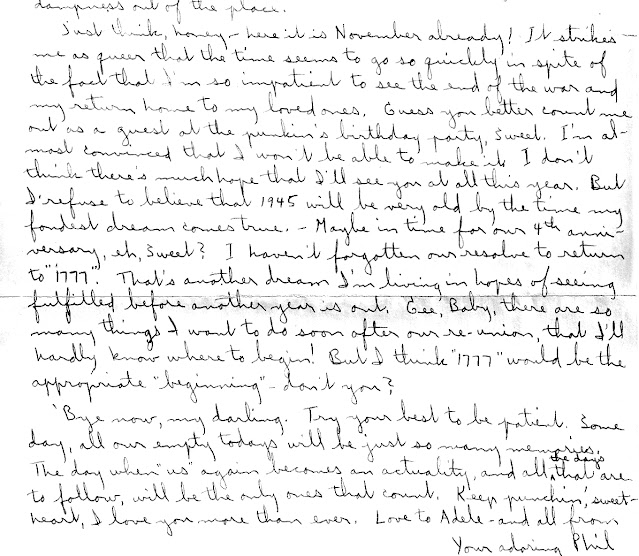 dampness out of the place.
Just think, honey - here it is November already! It strikes
me as queer that the time seems to go so quickly in spite of
the fact that I'm so impatient to see the end of the war and
my return home to my loved ones. Guess you better count me
out as a guest at the punkin's birthday party, Sweet. I'm al-
most convinced that I won't be able to make it. I don't
think there's much hope that I'll see you at all this year. But
I refuse to believe that 1945 will be very old by the time my
fondest dream comes true. - Maybe in time for our 4th anni-
versary, eh, Sweet? I haven't forgotten our resolve to return
to "1777". That's another dream I'm living in hopes of seeing
fulfilled before another year is out. Gee, Baby, there are so
many things I want to do soon after our re-union, that I'll
hardly know where to begin! But I think "1777" would be the
appropriate "beginning" - don't you?
'Bye now, my darling. Try your best to be patient. Some
day, all our empty todays will be just so many memories.
The day when "us" again becomes an actuality, and all the days that are
to follow, will be the only ones that count. Keep punchin', sweet-
heart, I love you more than ever. Love to Adele - and all from
Your adoring Phil